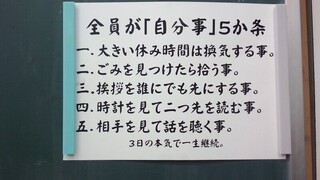 全員が「自分事」5か条
一.大きい休み時間は換気する事。
二.ごみを見つけたら拾う事。
三.挨拶を誰にでも先にする事。
四.時計を見て二つ先を読む事。
五.相手を見て話を聴く事。
3日の本気で一生継続。